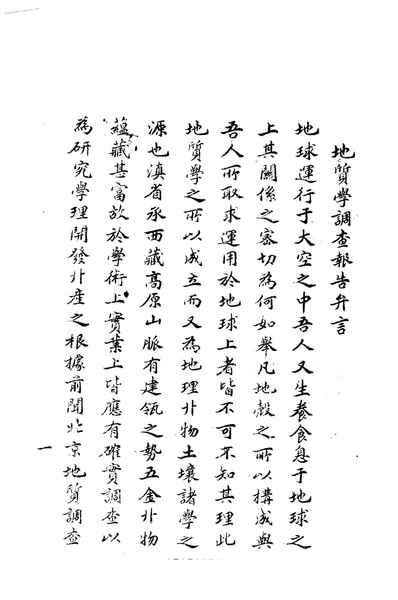 地質學調查報告弁言
地球運行于大空之中吾人又生養食息于地球之
上其關係之密切為何如舉凡地殼之所以搆成與
吾人所取求運用於地球上者皆不可不知其理此
地質學之所以成立而又為地理卝物土壤諸學之
源也滇省承西藏高原山脈有建瓴之勢五金卝物
蘊藏甚富故於學術上實業上皆應有確實調查以
為研究學理開發卝產之根據前聞北京地質調查
一